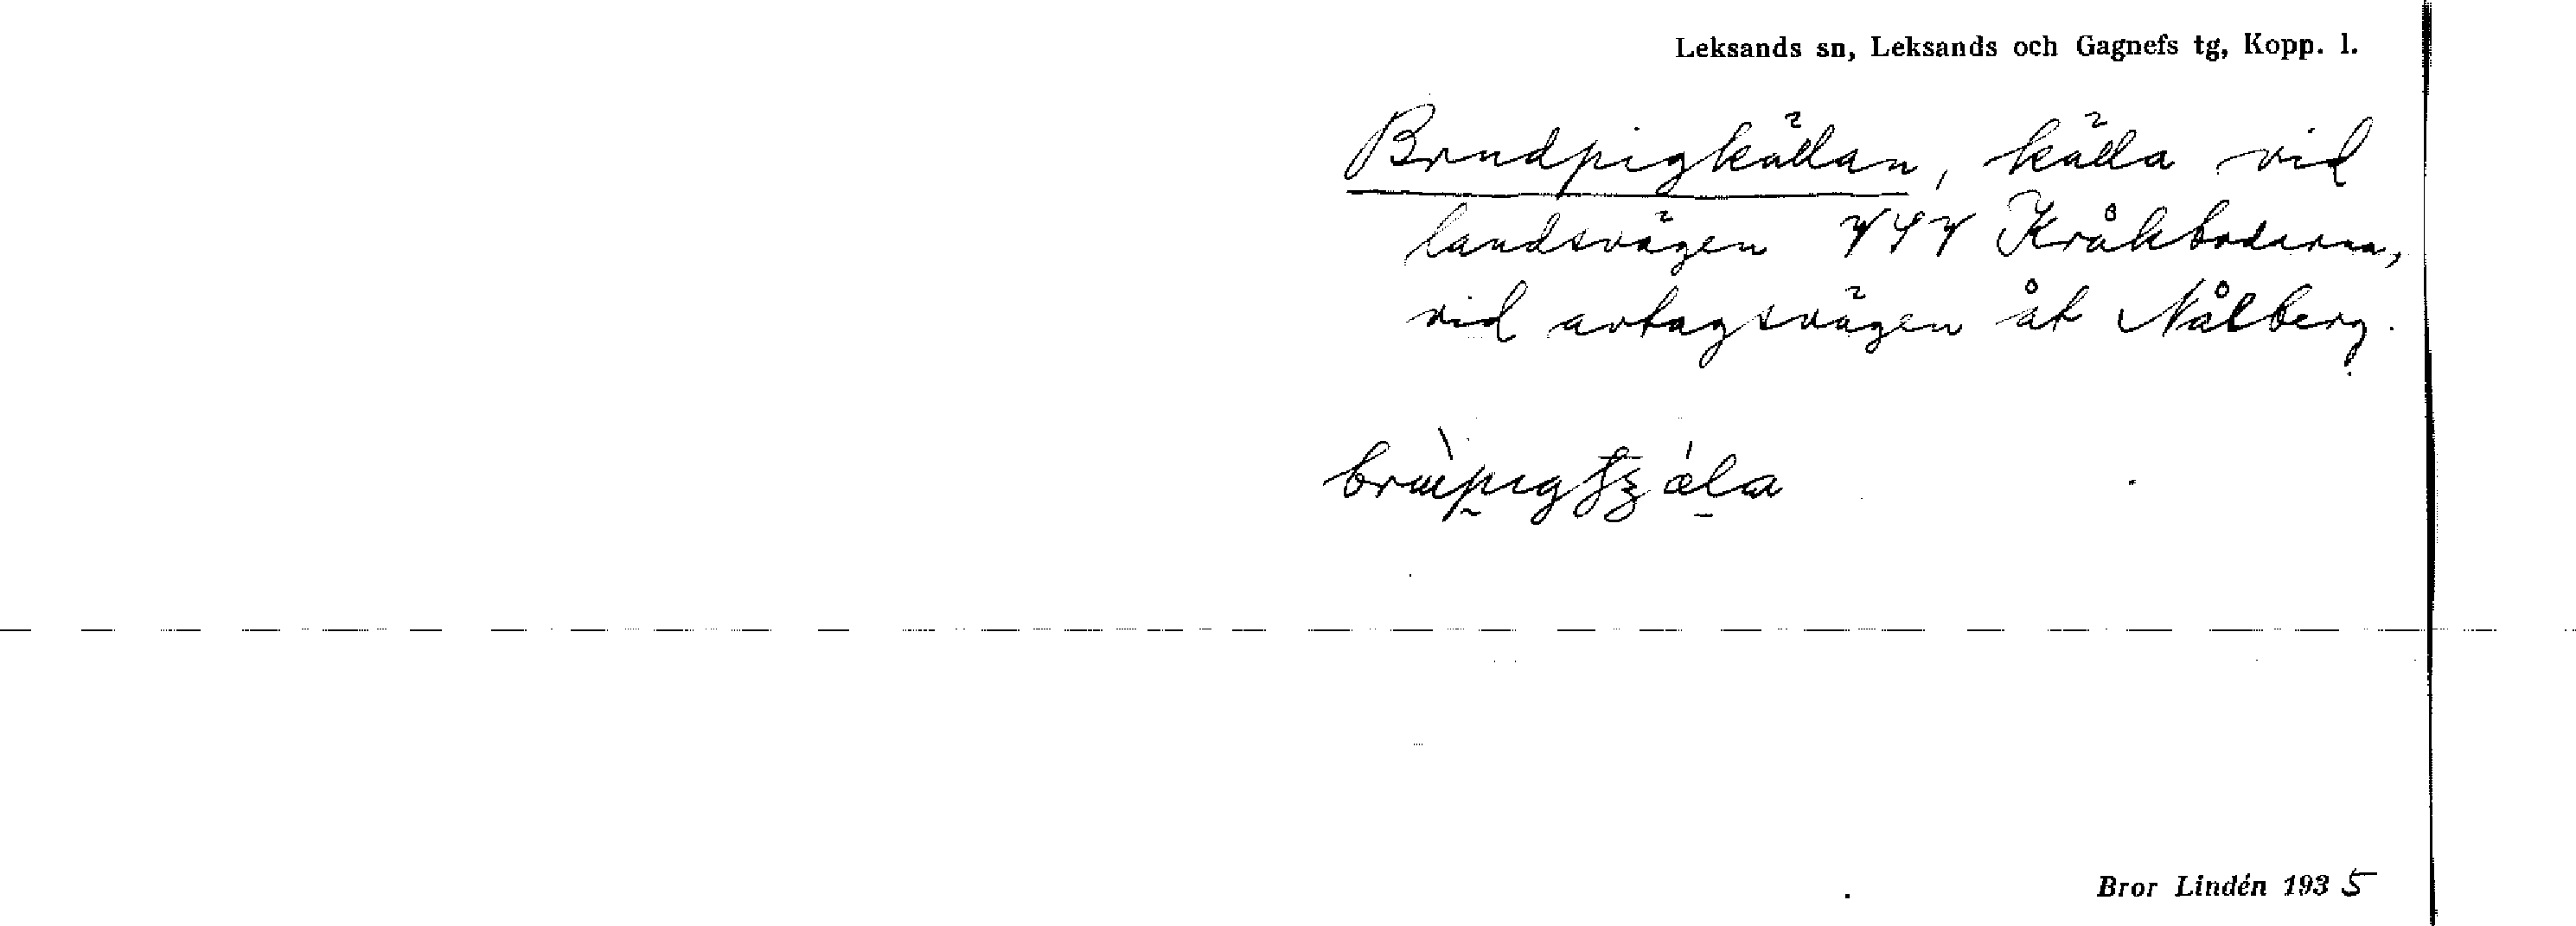 Leksands sn, Leksands och Gagnefs tg, Kopp. l.
Brudpigkällan, källa vid
landsvägen VSV Kråkbodarna,
vid avtagsvägen åt Nålberg.
Bror Lindén 1935